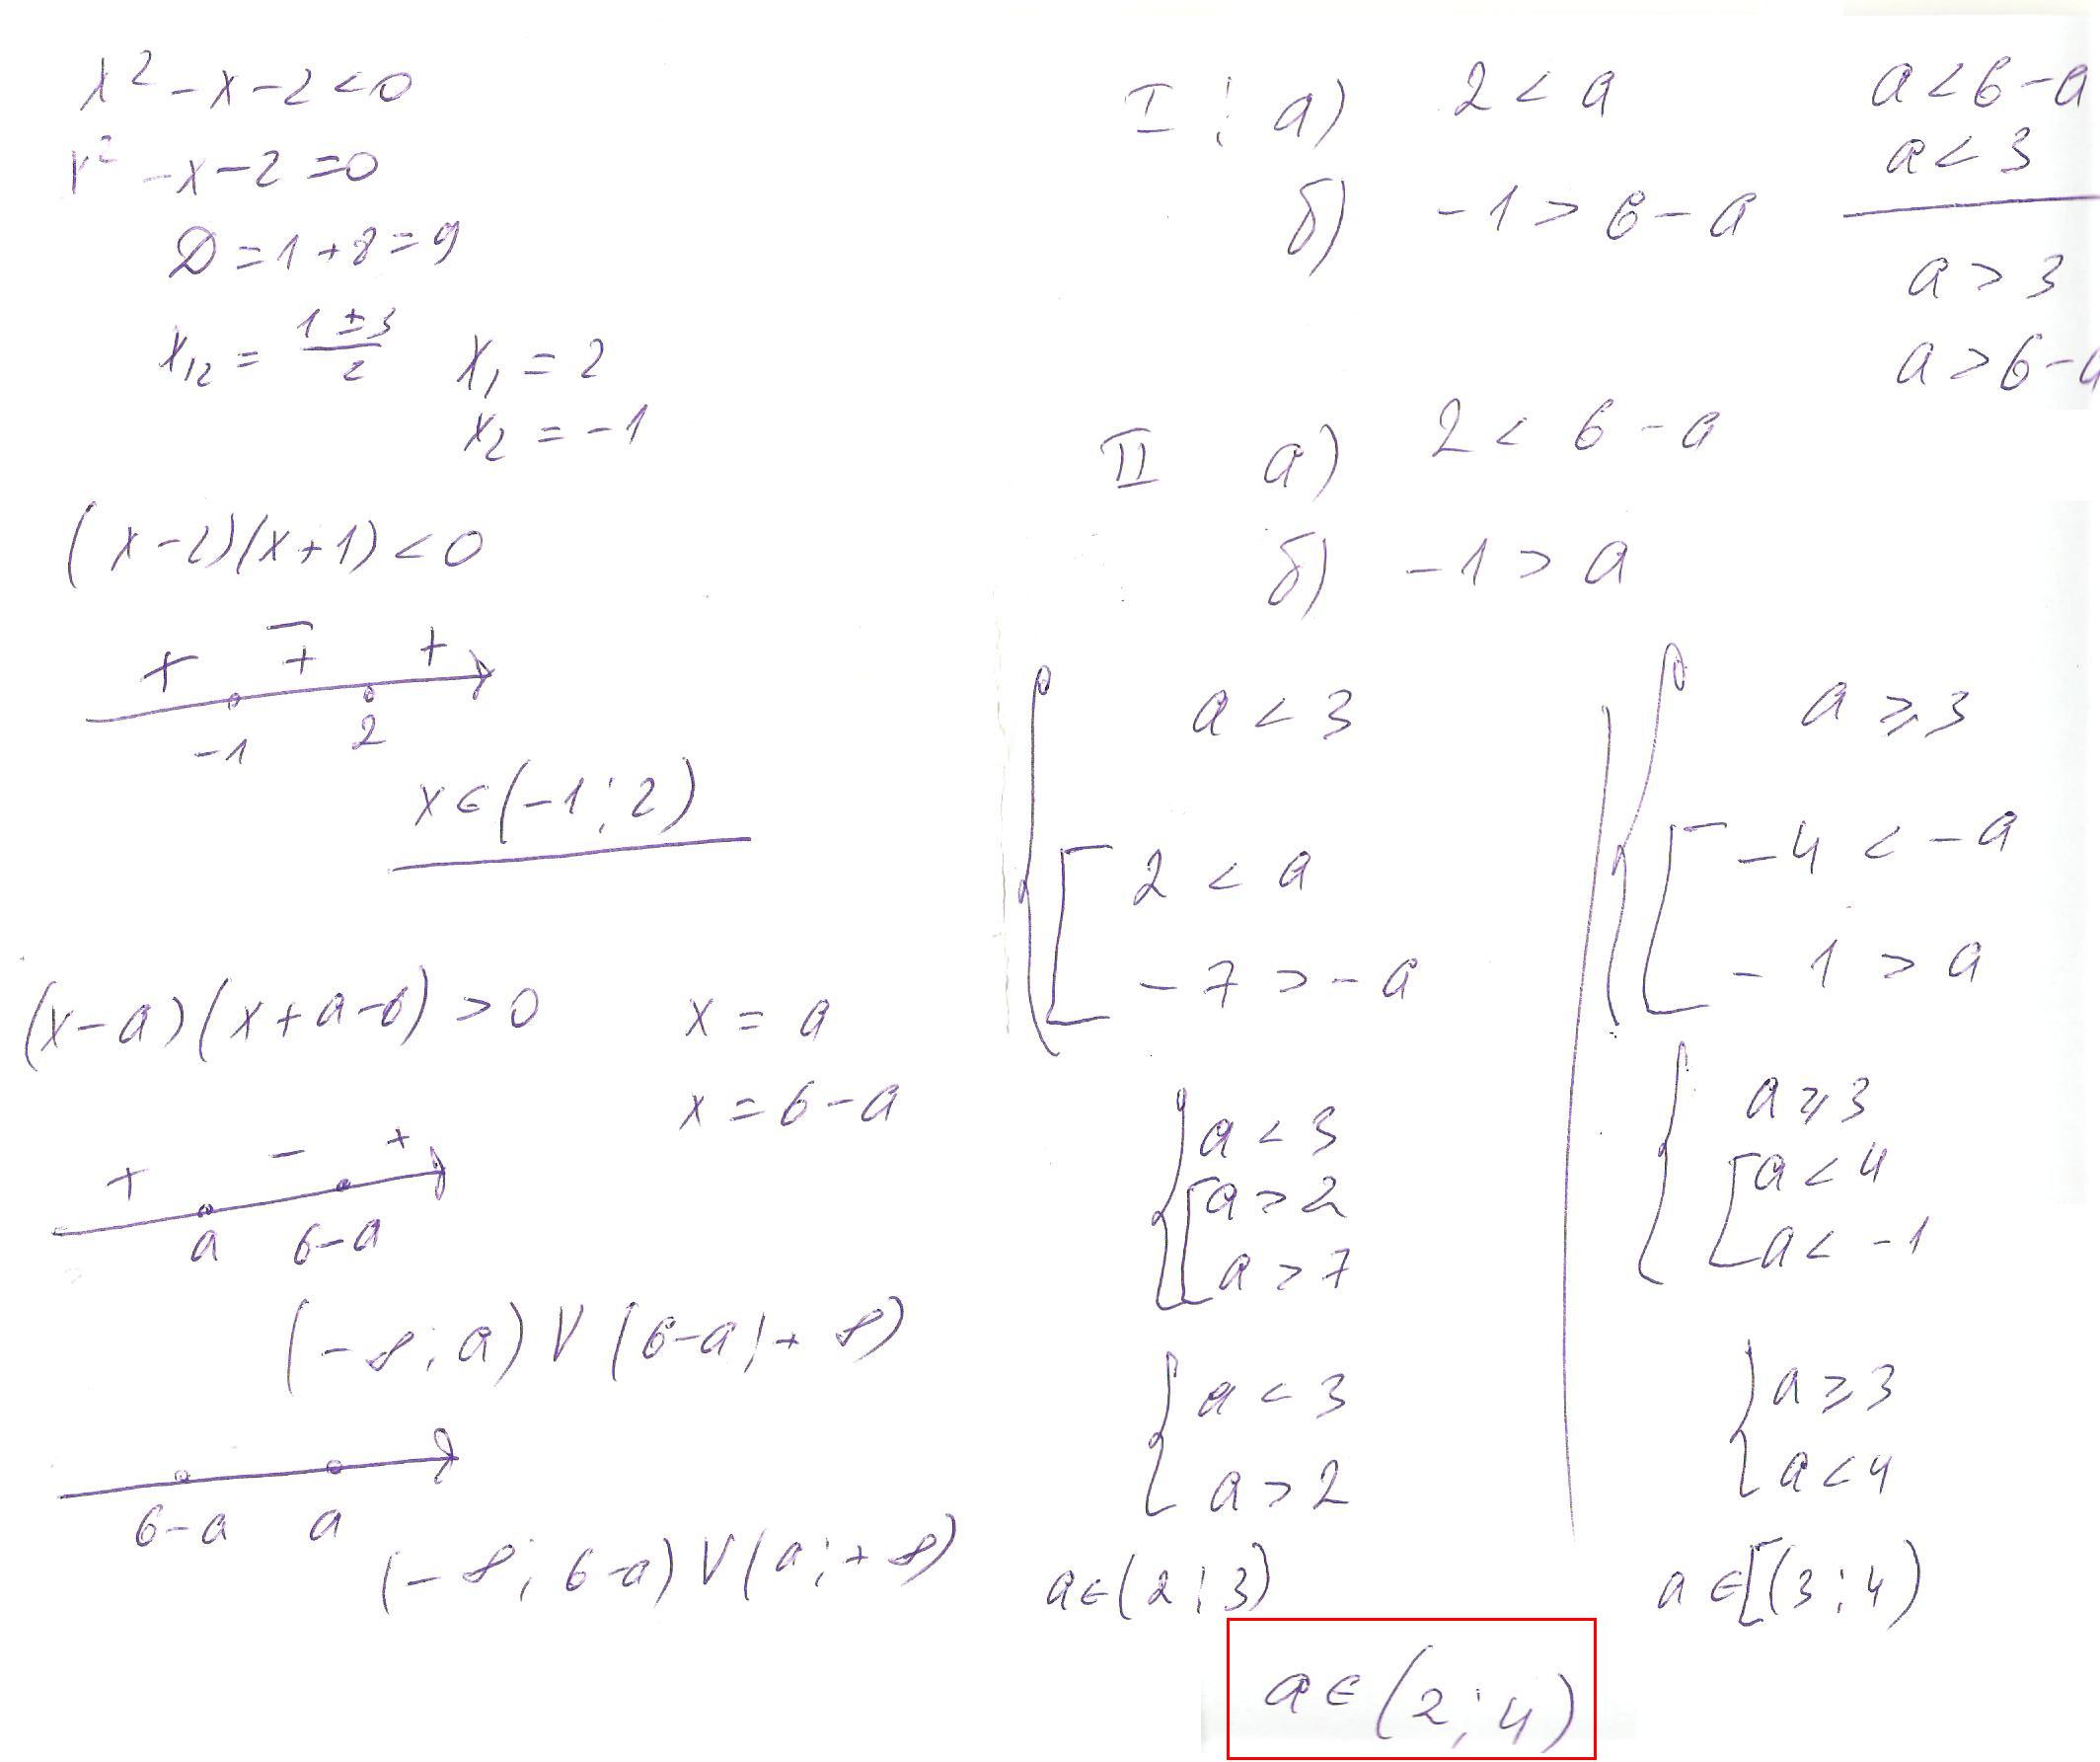 x² - x - 2 < 0
x² - x - 2 = 0
D = 1 + 8 = 9
x₁₂ = (1 ± 3)/2 x₁ = 2
x₂ = -1
(x-2)(x+1) < 0
+ - + +
-1 2
x ∈ (-1; 2)
(x-a)(x+a-6) > 0 x = a
x = 6 - a
+ - +
a 6-a
(-∞; a) V (6-a; +∞)
6-a a
(-∞; 6-a) V (a; +∞)
I: а) 2 < a
б) -1 > 6 - a
a < 6 - a
a < 3
a > 3
a > 6 - a
II а) 2 < 6 - a
б) -1 > a
{ a < 3
[ 2 < a
-7 > -a
{ a < 3
[ a > 2
a > 7
{ a < 3
a > 2
a ∈ (2; 3)
{ a ⩾ 3
[ -4 < -a
-1 > a
{ a ⩾ 3
[ a < 4
a < -1
{ a ⩾ 3
a < 4
a ∈ [(3; 4)
a ∈ (2; 4)